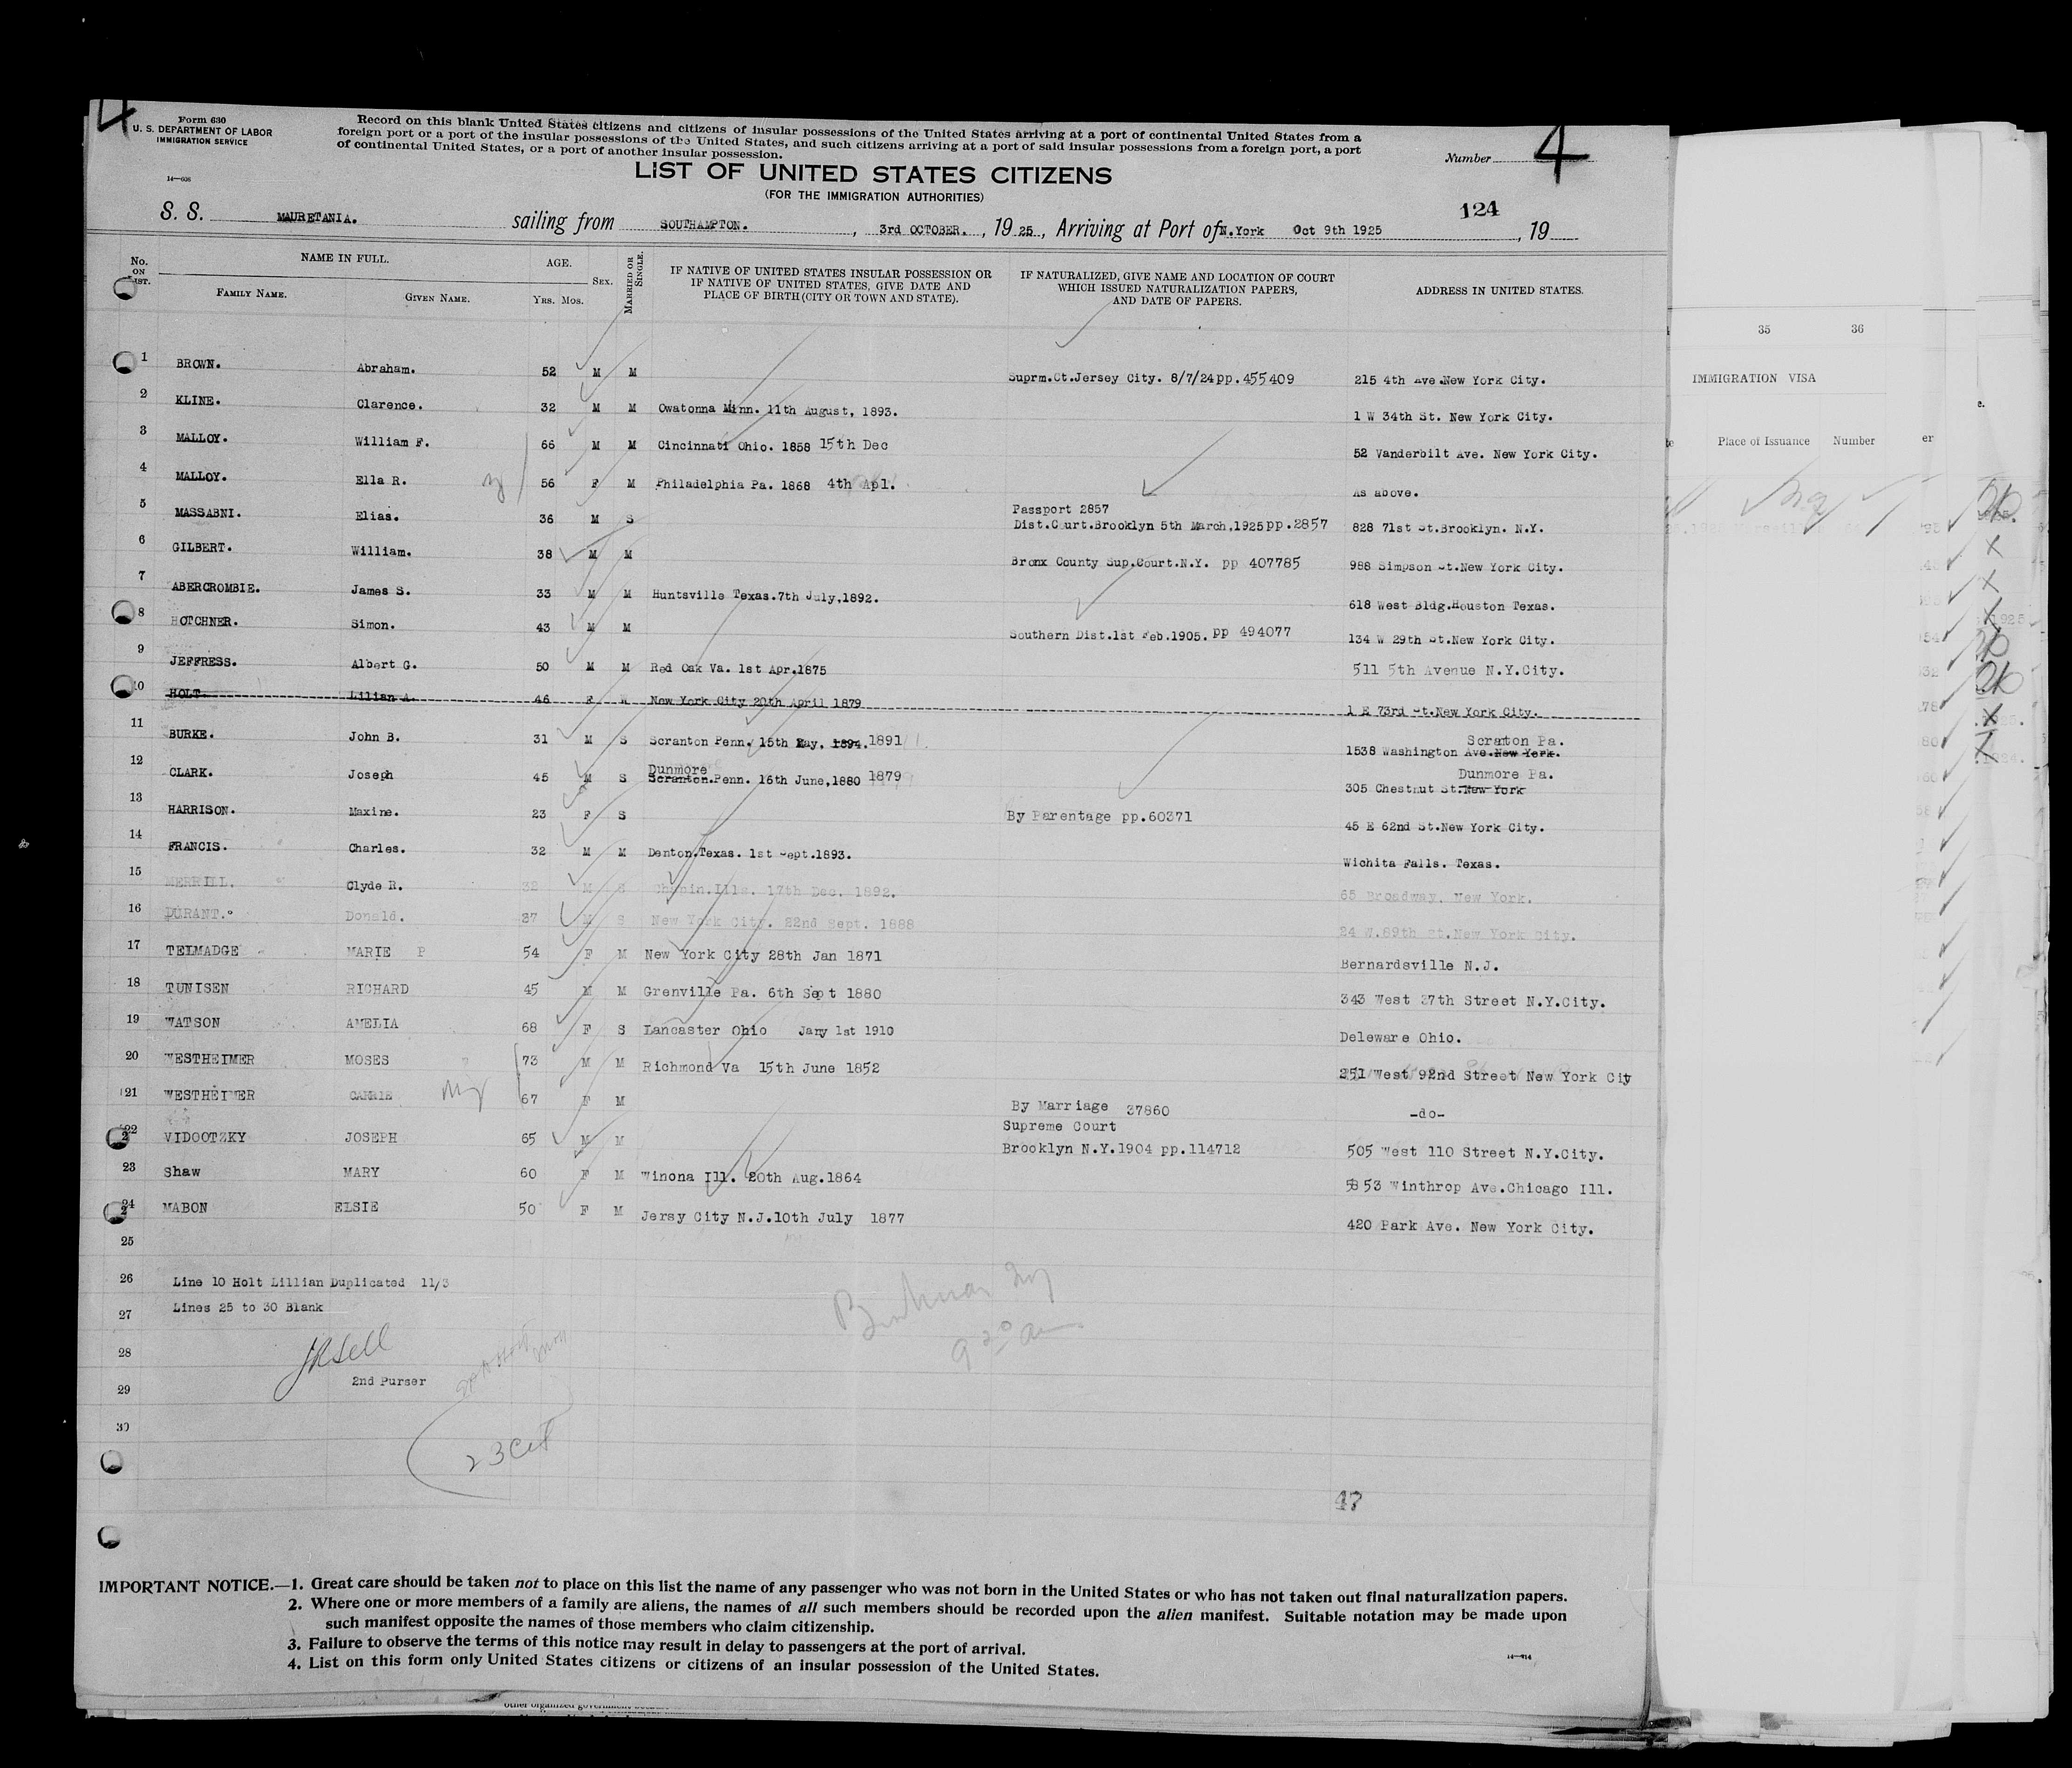 Form 630
U. S. DEPARTMENT OF LABOR
IMMIGRATION SERVICE
14—606
Record on this blank United States citizens and citizens of insular possessions of the United States arriving at a port of continental United States from a
foreign port or a port of the insular possessions of the United States, and such citizens arriving at a port of said insular possessions from a foreign port, a port
of continental United States, or a port of another insular possession.
Number 4
4
LIST OF UNITED STATES CITIZENS
(FOR THE IMMIGRATION AUTHORITIES)
124
S. S. MAURETANIA. sailing from SOUTHAMPTON. , 3rd OCTOBER. , 19 25 , Arriving at Port of N.York Oct 9th 1925 , 19
No. ON LIST.
NAME IN FULL.
FAMILY NAME. GIVEN NAME.
AGE.
YRS. MOS.
SEX.
MARRIED OR SINGLE.
IF NATIVE OF UNITED STATES INSULAR POSSESSION OR
IF NATIVE OF UNITED STATES, GIVE DATE AND
PLACE OF BIRTH (CITY OR TOWN AND STATE).
IF NATURALIZED, GIVE NAME AND LOCATION OF COURT
WHICH ISSUED NATURALIZATION PAPERS,
AND DATE OF PAPERS.
ADDRESS IN UNITED STATES.
1 BROWN. Abraham. 52 M M Suprm.Ct.Jersey City. 8/7/24 pp.455409 215 4th Ave.New York City.
2 KLINE. Clarence. 32 M M Owatonna Minn. 11th August, 1893. 1 W 34th St. New York City.
3 MALLOY. William F. 66 M M Cincinnati Ohio. 1858 15th Dec 52 Vanderbilt Ave. New York City.
4 MALLOY. Ella R. 56 F M Philadelphia Pa. 1868 4th Apl. As above.
Passport 2857
5 MASSABNI. Elias. 36 M S Dist.Court.Brooklyn 5th March,1925 pp.2857 828 71st St.Brooklyn. N.Y.
6 GILBERT. William. 38 M M Bronx County Sup.Court.N.Y. pp 407785 988 Simpson St.New York City.
7 ABERCROMBIE. James S. 33 M M Huntsville Texas.7th July,1892. 618 West Bldg.Houston Texas.
8 HOTCHNER. Simon. 43 M M Southern Dist.1st Feb.1905. pp 494077 134 W 29th St.New York City.
9 JEFFRESS. Albert G. 50 M M Red Oak Va. 1st Apr.1875 511 5th Avenue N.Y.City.
10 HOLT Lilian A. 46 F New York City 20th April 1879 1 E 73rd St.New York City.
11 BURKE. John B. 31 M S Scranton Penn. 15th May, 1894. 1891 Scranton Pa.
1538 Washington Ave.New York.
12 CLARK. Joseph 45 M S Dunmore Scranton.Penn. 16th June,1880 1879 Dunmore Pa.
305 Chestnut St.New York
13 HARRISON. Maxine. 23 F S By Parentage pp.60371 45 E 62nd St.New York City.
14 FRANCIS. Charles. 32 M M Denton.Texas. 1st Sept.1893. Wichita Falls. Texas.
15 MERRILL. Clyde R. 32 M S Ills. 17th Dec. 1892. 65 Broadway. New York.
16 DURANT. Donald. 37 M S New York City. 22nd Sept. 1888 24 W.89th St.New York City.
17 TELMADGE MARIE P 54 F M New York City 28th Jan 1871 Bernardsville N.J.
18 TUNISEN RICHARD 45 M M Grenville Pa. 6th Sept 1880 343 West 37th Street N.Y.City.
19 WATSON AMELIA 68 F S Lancaster Ohio Jany 1st 1910 Deleware Ohio.
20 WESTHEIMER MOSES 73 M M Richmond Va 15th June 1852 251 West 92nd Street New York Cit
21 WESTHEIMER CARRIE 67 F M By Marriage 37860 -do-
Supreme Court
22 VIDOOTZKY JOSEPH 65 M M Brooklyn N.Y.1904 pp.114712 505 West 110 Street N.Y.City.
23 Shaw MARY 60 F M Winona Ill. 20th Aug.1864 5853 Winthrop Ave.Chicago Ill.
24 MABON ELSIE 50 F M Jersy City N.J.10th July 1877 420 Park Ave. New York City.
25
26 Line 10 Holt Lillian Duplicated 11/3
27 Lines 25 to 30 Blank
28
2nd Purser
29
30
23 Cit
9 20 am
47
IMPORTANT NOTICE.—1. Great care should be taken not to place on this list the name of any passenger who was not born in the United States or who has not taken out final naturalization papers.
2. Where one or more members of a family are aliens, the names of all such members should be recorded upon the alien manifest. Suitable notation may be made upon
such manifest opposite the names of those members who claim citizenship.
3. Failure to observe the terms of this notice may result in delay to passengers at the port of arrival.
4. List on this form only United States citizens or citizens of an insular possession of the United States.
14—414
35 36
IMMIGRATION VISA
Place of Issuance Number